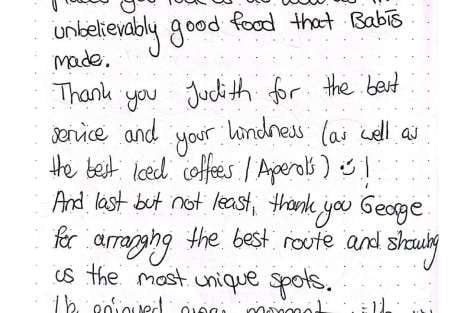 unbelievably good food that Babis
made.
Thank you Judith for the best
service and your kindness (as well as
the best iced coffees / Aperols) :)!
And last but not least, thank you George
for arranging the best route and showing
us the most unique spots.
enjoyed every moment with